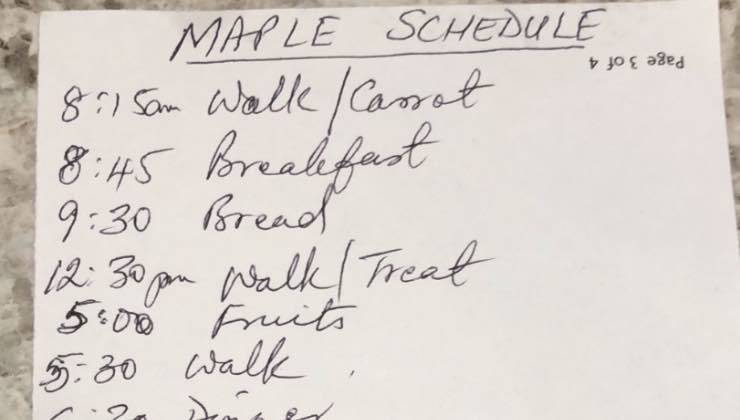 MAPLE SCHEDULE
Page 3 of 4
8:15am Walk/Carrot
8:45 Breakfast
9:30 Bread
12:30pm Walk/Treat
5:00 Fruits
5:30 Walk.
6:30 Dinner